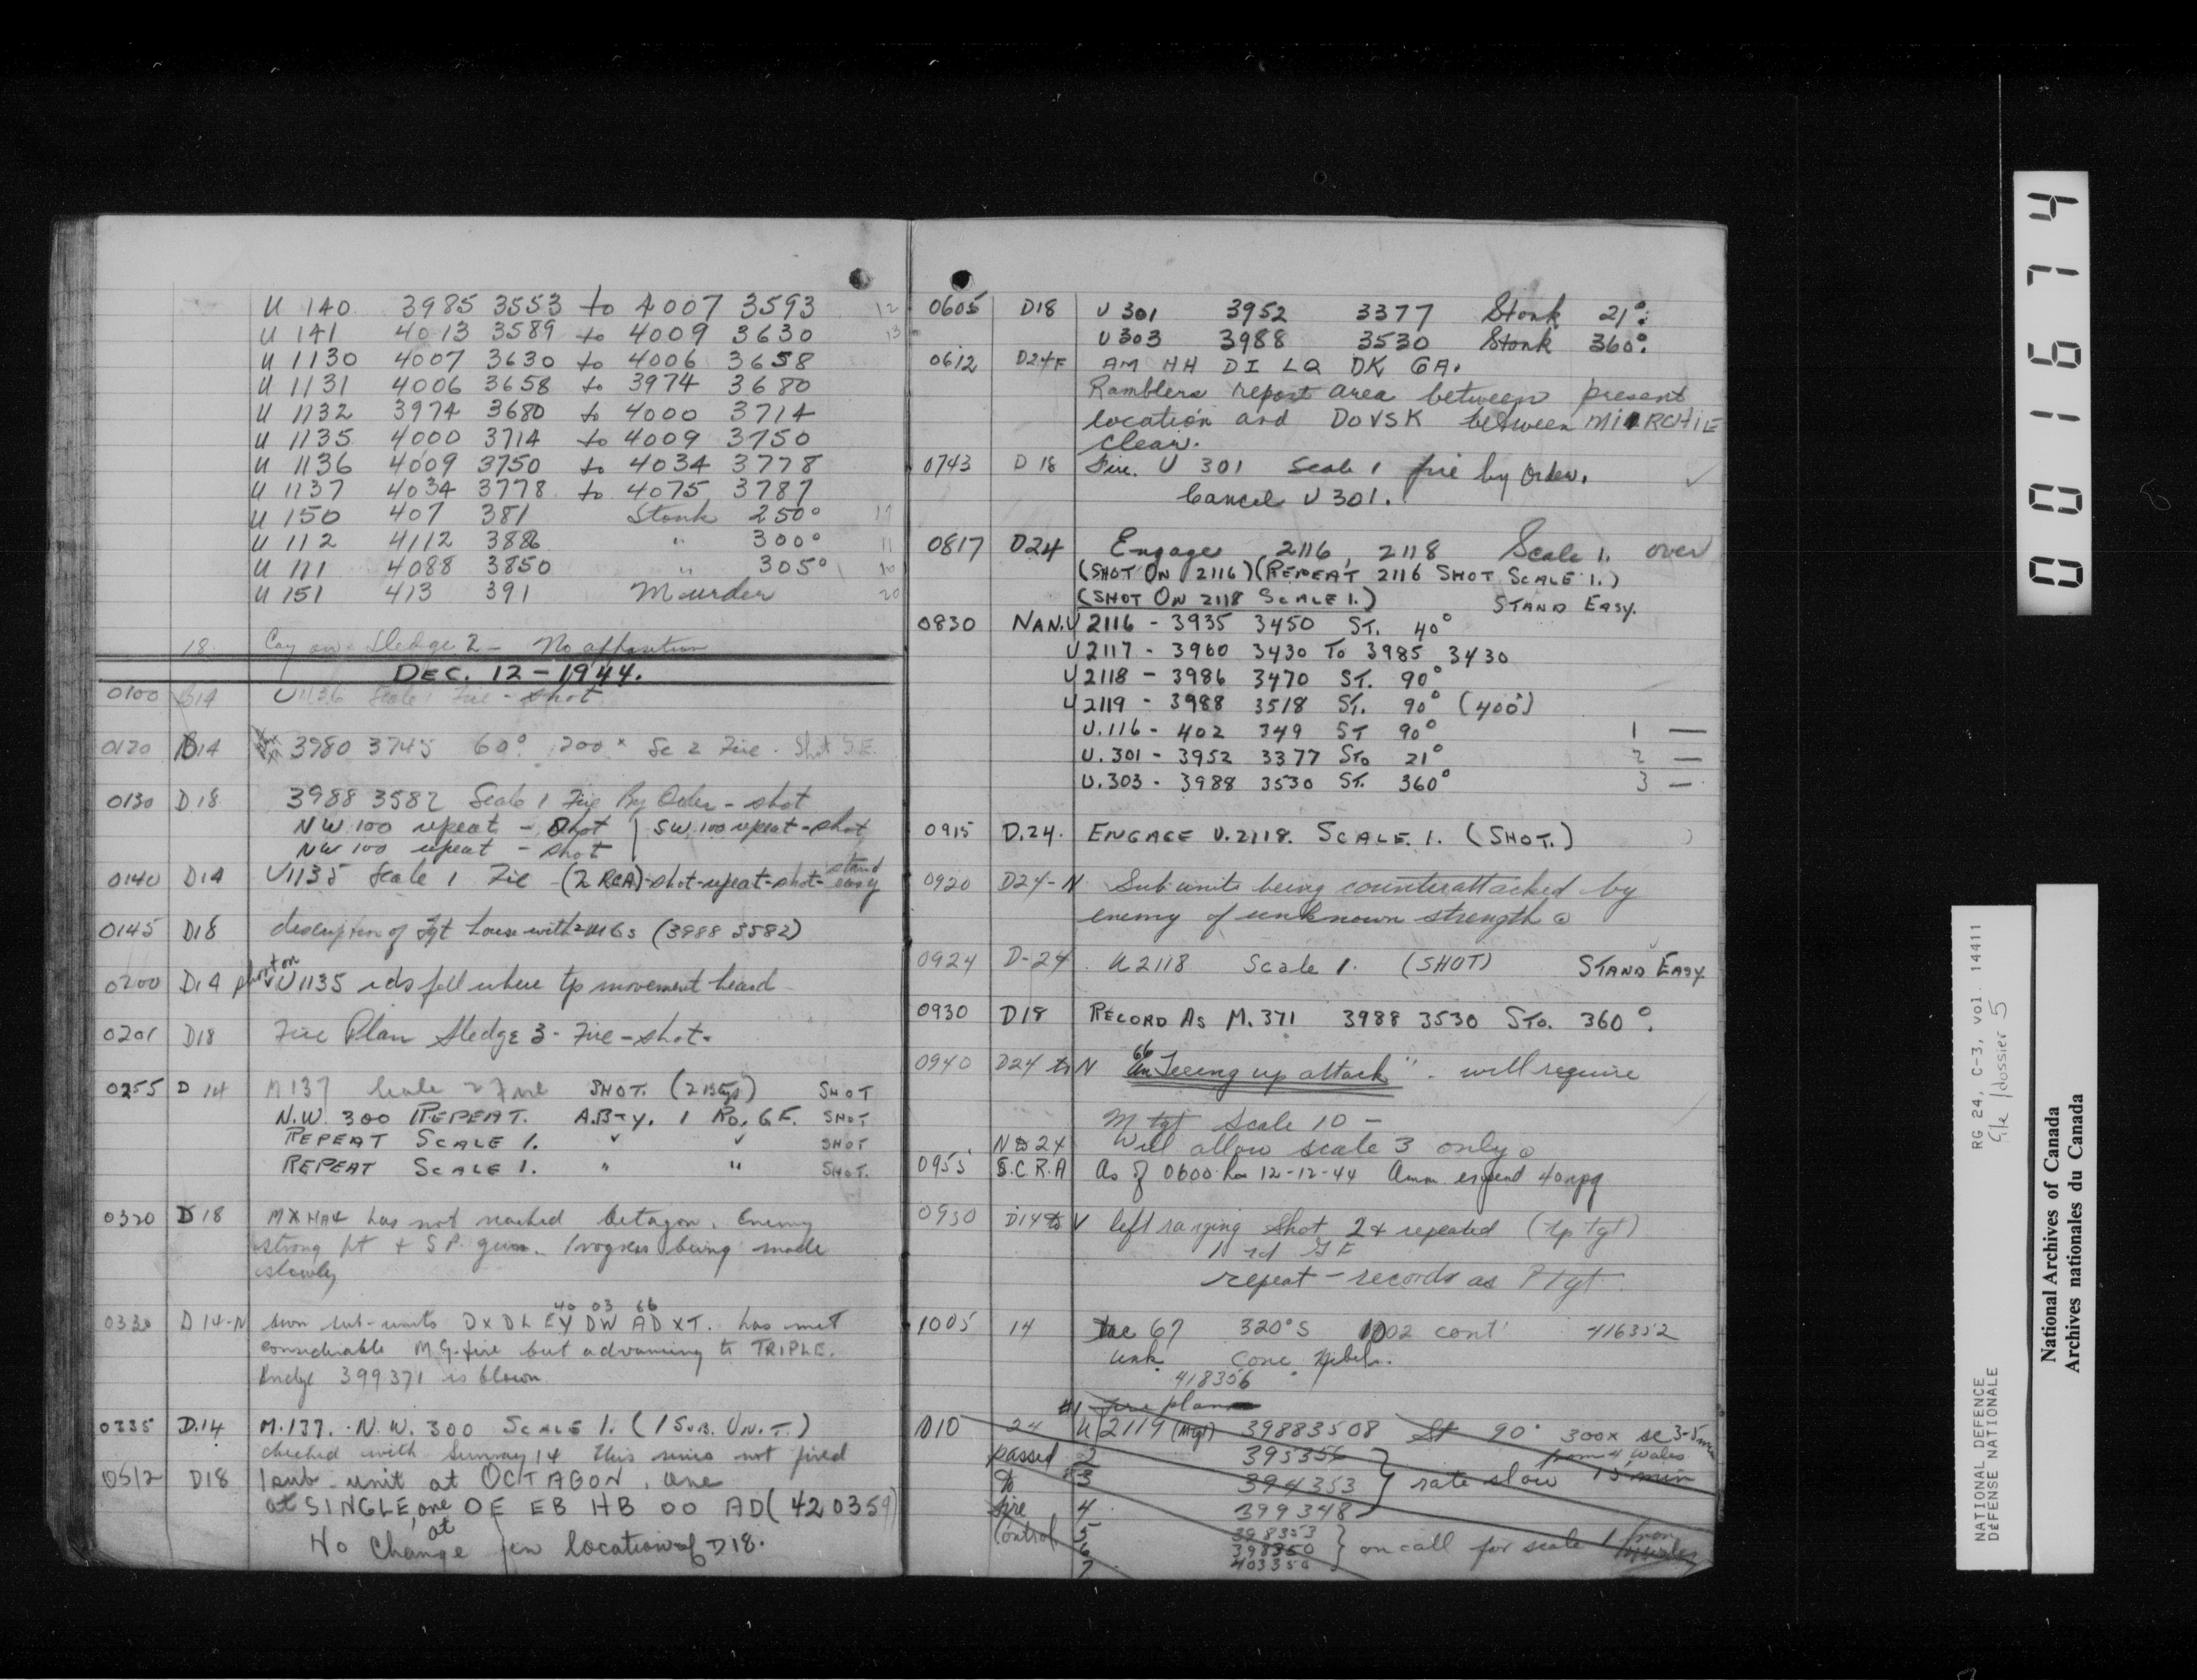 U 140 3985 3553 to 4007 3593 12
U 141 4013 3589 to 4009 3630 13
U 1130 4007 3630 to 4006 3658
U 1131 4006 3658 to 3974 3680
U 1132 3974 3680 to 4000 3714
U 1135 4000 3714 to 4009 3750
U 1136 4009 3750 to 4034 3778
U 1137 4034 3778 to 4075 3787
U 150 407 381 Stonk 250°
U 112 4112 3886 " 300° 11
U 111 4088 3850 " 305° 10
U 151 413 391 Murder 20
18. Coy on Sledge 2 - No opposition
DEC. 12-1944.
0100 D14 U1136 Scale 1 Fire - shot
0120 B14 3980 3745 60° 200x Sc 2 Fire. Shot G.E.
0130 D18 3988 3582 Scale 1 Fire By Order - shot
NW 100 repeat - shot | SW 100 repeat - shot
NW 100 repeat - shot
0140 D14 U1135 Scale 1 Fire - (2 RCA) - shot - repeat - shot - stand easy
0145 D18 description of Tgt house with 2 MGs (3988 3582)
0200 D14 shot on U1135 rds fell where tp movement heard
0201 D18 Fire Plan Sledge 3 - Fire - shot.
0255 D 14 M137 Scale 2 Fire SHOT. (2 Btys) SHOT
N.W. 300 REPEAT. A.BTY. 1 RD. G F. SHOT
REPEAT SCALE 1. " " SHOT
REPEAT SCALE 1. " " SHOT.
0320 D18 has not reached Octagon. Enemy
strong pt + S P. gun. Progress being made
slowly
0330 D 14-N own sub-units DX DL EY DW AD XT. has met
40 03 66
considerable M.G. fire but advancing to TRIPLE.
Bridge 399371 is blown
0335 D.14 M.137. N.W. 300 SCALE 1. (1 SUB. UNIT.)
checked with Sunray 14 this was not fired
0512 D18 1 sub-unit at OCTAGON, one
at SINGLE, one at OE EB HB OO AD (420359)
No change in location of D18.
0605 D18 U 301 3952 3377 Stonk 21°.
U 303 3988 3530 Stonk 360°.
0612 D24F AM HH DI LQ DK GA.
Ramblers report area between present
location and DOVSK between
clear.
0743 D 18 Fire. U 301 Scale 1 fire by Order.
Cancel U 301.
0817 D24 Engage 2116, 2118 Scale 1. over
(SHOT ON 2116) (REPEAT 2116 SHOT SCALE 1.)
(SHOT ON 2118 SCALE 1.) STAND EASY.
0830 NAN. U 2116 - 3935 3450 ST. 40°
U 2117 - 3960 3430 TO 3985 3430
U 2118 - 3986 3470 ST. 90°
U 2119 - 3988 3518 ST. 90° (400°)
U. 116 - 402 349 ST 90° 1 —
U. 301 - 3952 3377 STO 21° 2 —
U. 303 - 3988 3530 ST. 360° 3 —
0915 D.24. ENGAGE U.2118. SCALE. 1. (SHOT.)
0920 D24-N Sub units being counterattacked by
enemy of unknown strength
0924 D-24 U 2118 Scale 1. (SHOT) STAND EASY
0930 D18 RECORD AS M.371 3988 3530 STO. 360°.
0940 D24 to N "Teeing up attack". will require
M tgt Scale 10 -
N to 24 Will allow scale 3 only
0955 S.C.R.A As of 0600 hrs 12-12-44 Amm expend 40 rpg
0930 D14 to V left ranging shot 24 repeated (tp tgt)
1 rd G F
repeat - records as P Tgt
1005 14 Tac 67 320° S 1002 cont' 416352
unk conc Nebels.
418356
#1 fire plan
1010 24 U 2119 (Mtgt) 3988 3508 St 90° 300x sc 3-5 min
passed 2 395356 from 4 Wales
to 3 394353 } rate slow 15 min
fire 4 399348
Control 5 398353
6 398350 } on call for scale 1 from
7 403350
0001674
RG 24, C-3, vol. 14411
File/dossier 5
NATIONAL DEFENCE
DÉFENSE NATIONALE
National Archives of Canada
Archives nationales du Canada